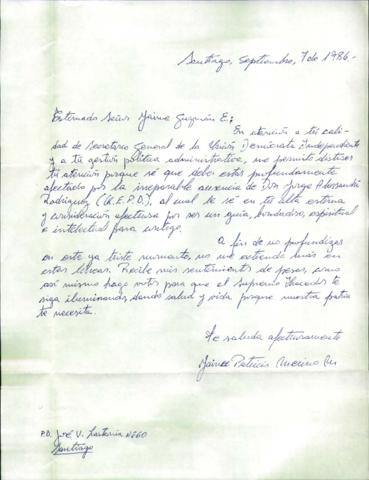 Santiago, Septiembre, 7 de 1986.-
Estimado Señor Jaime Guzmán E;
En atención a tú cali-
dad de Secretario General de la Unión Demócrata Independiente
y a tú gestión política administrativa, me permito distraer
tú atención porque sé que debes estar profundamente
afectado por la irreparable ausencia de Don Jorge Alessandri
Rodríguez (Q.E.P.D.), al cual le sé en tú alta estima
y consideración afectuosa por ser un guía, bondadoso, espiritual
e intelectual para contigo.
A fin de no profundizar
en este ya triste momento, no me extiendo más en
estas líneas. Recibe mis sentimientos de pesar, como
así mismo hago votos para que el Supremo Hacedor te
siga iluminando, dando salud y vida porque nuestra patria
te necesita.
Te saluda afectuosamente
Patricio Merino
P.D. José V. Lastarria
Santiago